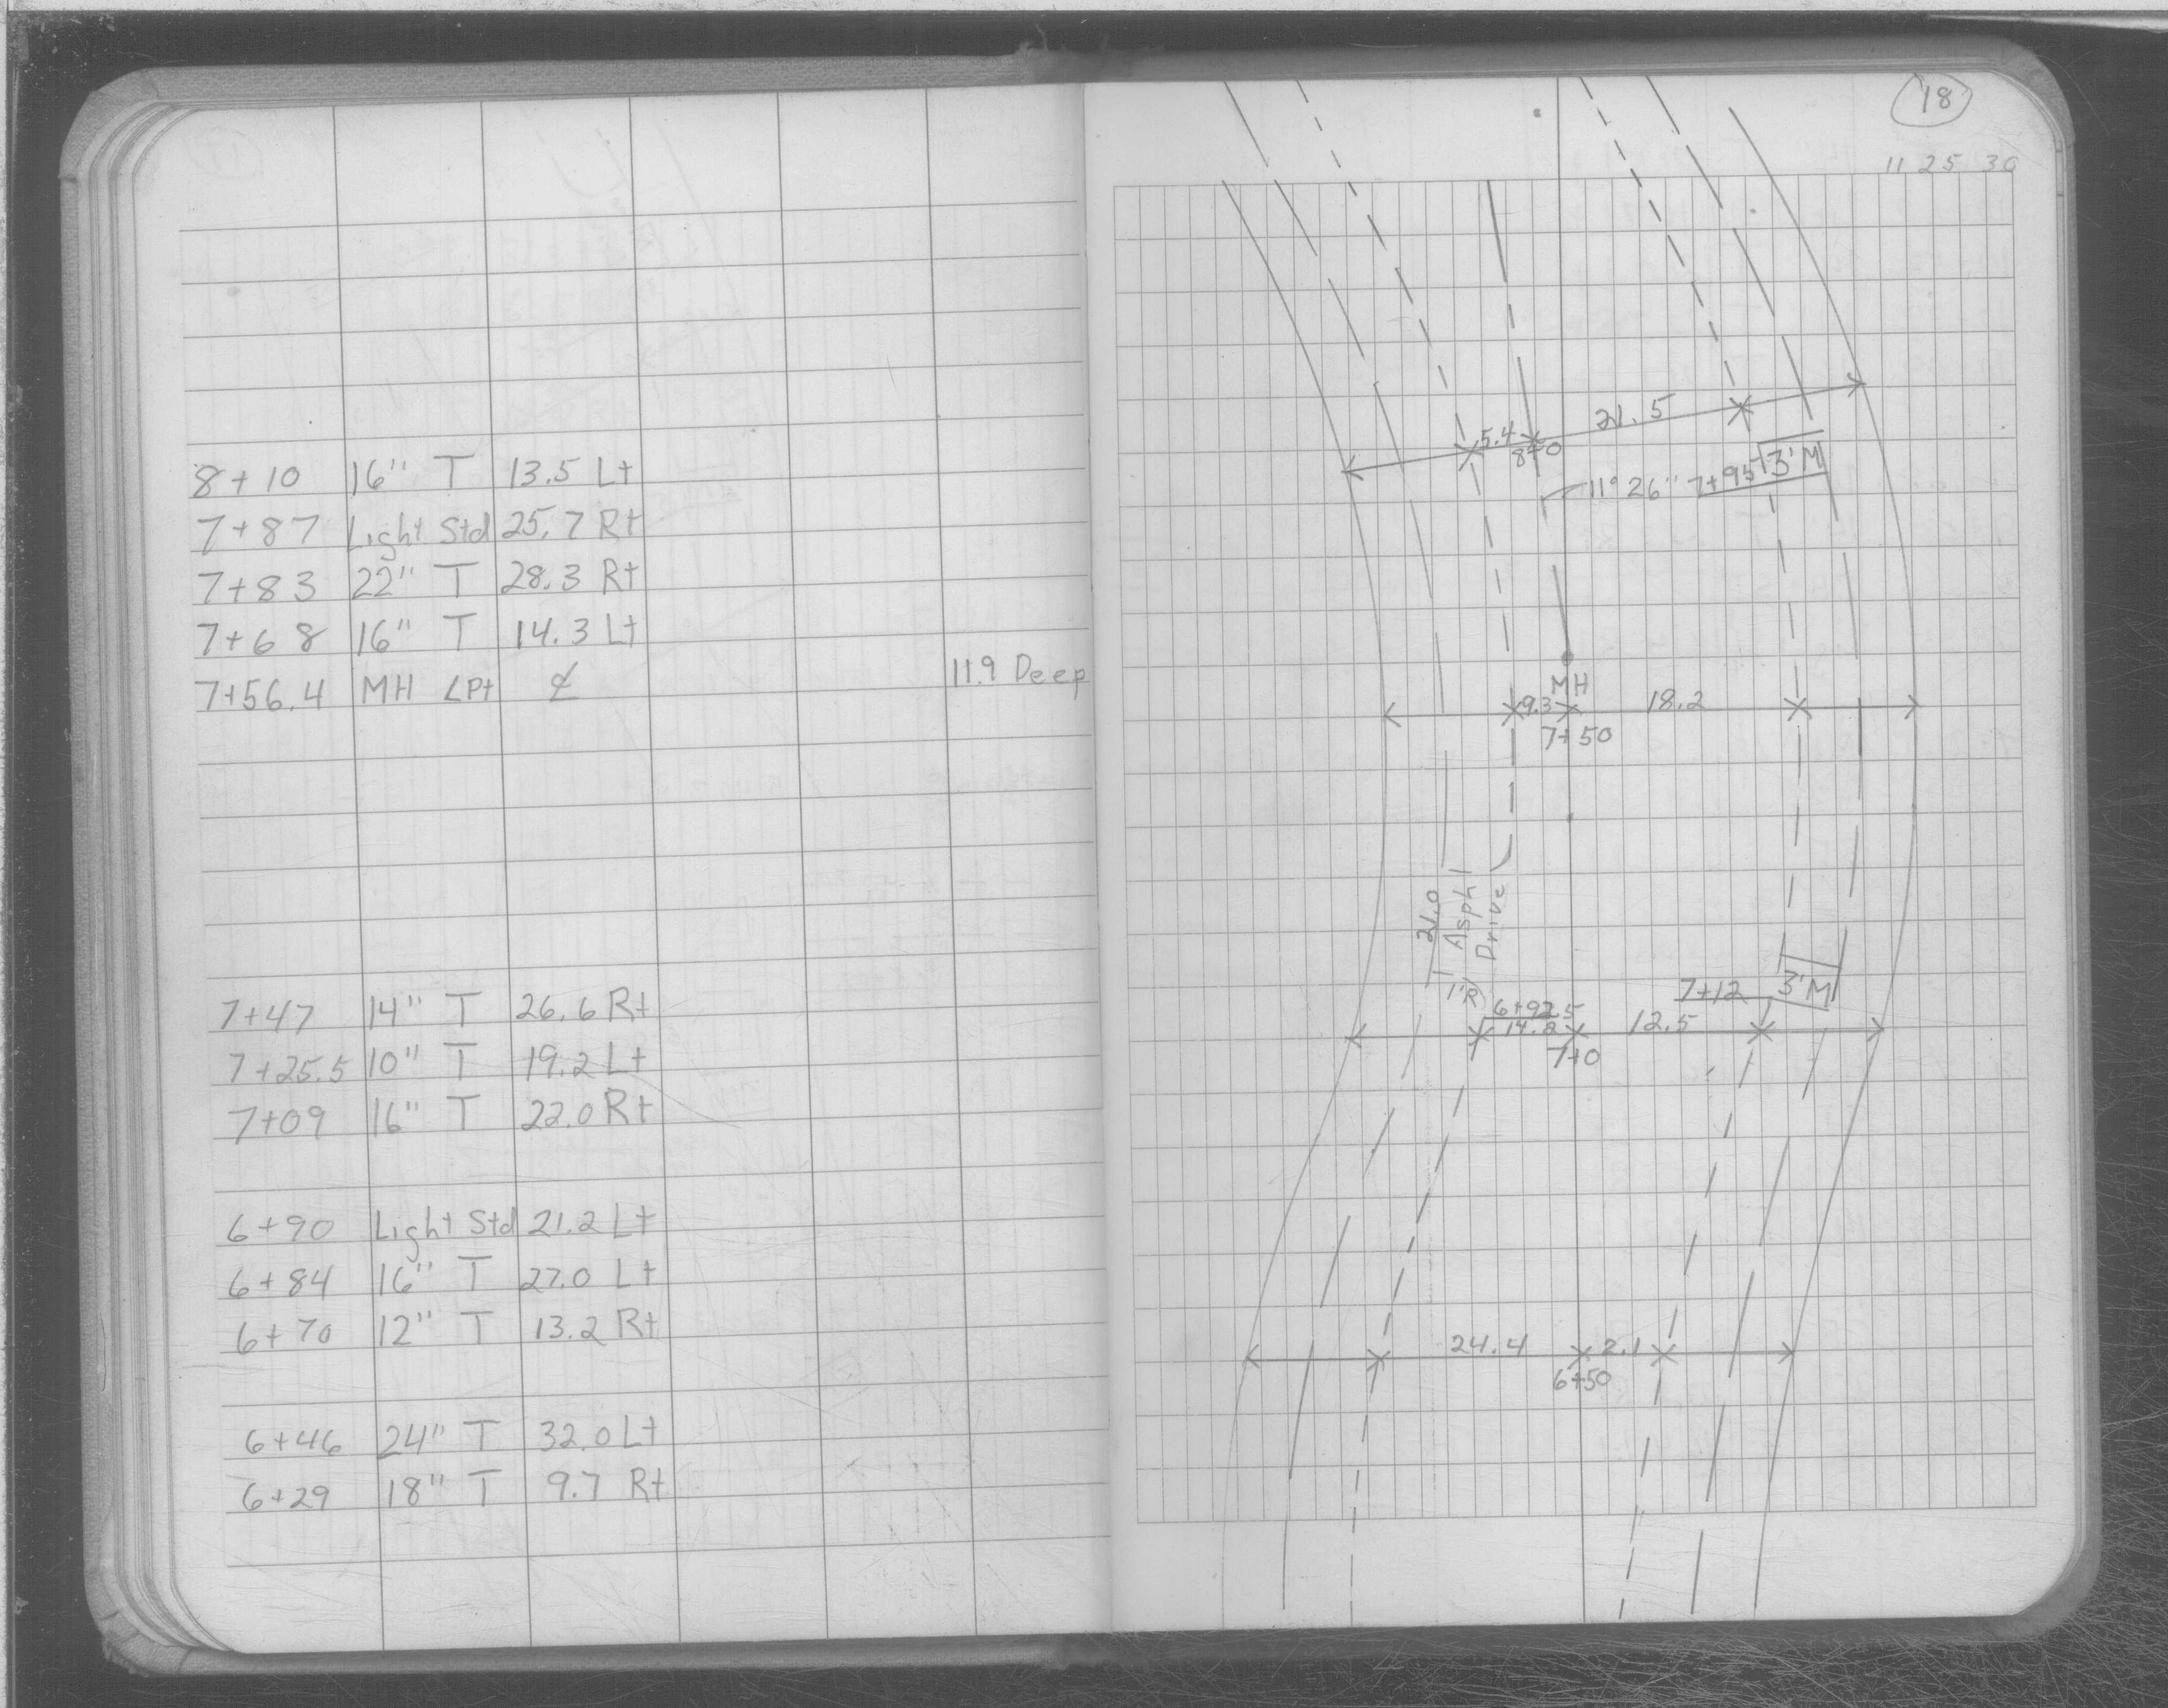 8+10 16" T 13.5 Lt
7+87 Light Std 25.7 Rt
7+83 22" T 28.3 Rt
7+68 16" T 14.3 Lt
7+56.4 MH ∠Pt ℄ 11.9 Deep
7+47 14" T 26.6 Rt
7+25.5 10" T 19.2 Lt
7+09 16" T 22.0 Rt
6+90 Light Std 21.2 Lt
6+84 16" T 27.0 Lt
6+70 12" T 13.2 Rt
6+46 24" T 32.0 Lt
6+29 18" T 9.7 Rt
18
11 25 30
5.4 21.5
8+0
11° 26" 7+95 3'M
MH
9.3 18.2
7+50
21.0
Asphl
Drive
1'R
7+12 3'M
6+92.5
14.8 12.5
7+0
24.4 2.1
6+50